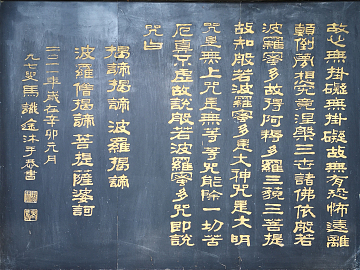 故心無掛礙無掛礙故無有恐怖遠離
顛倒夢想究竟涅槃三世諸佛依般若
波羅蜜多故得阿耨多羅三藐三菩提
故知般若波羅蜜多是大神咒是大明
咒是無上咒是無等等咒能除一切苦
厄真實不虛故說般若波羅蜜多咒即說
咒曰
揭諦揭諦 波羅揭諦
波羅僧揭諦 菩提薩婆訶
二〇一一年歲在辛卯元月
九七叟馬識途沐手恭書